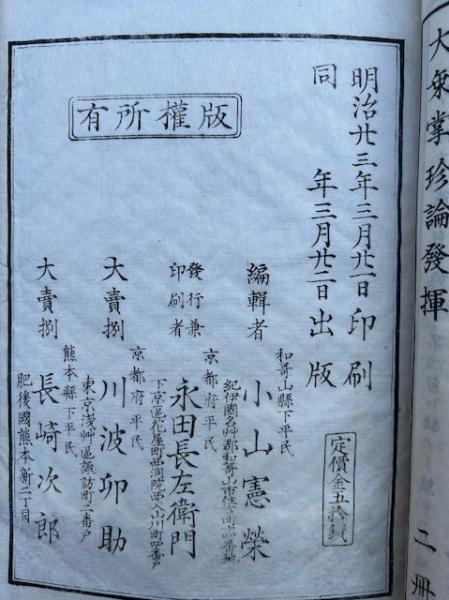 大乘掌珍論發揮 二冊
明治廿三年三月廿一日印刷
同 年三月廿二日出版
版權所有
定價金五拾錢
編輯者
和哥山縣下平民
小山憲榮
發行兼
印刷者
京都府平民
永田長左衞門
大賣捌
京都府下平民
東京淺艸區諏訪町二番戸
川波卯助
大賣捌
熊本縣下平民
肥後國熊本新二丁目
長崎次郎